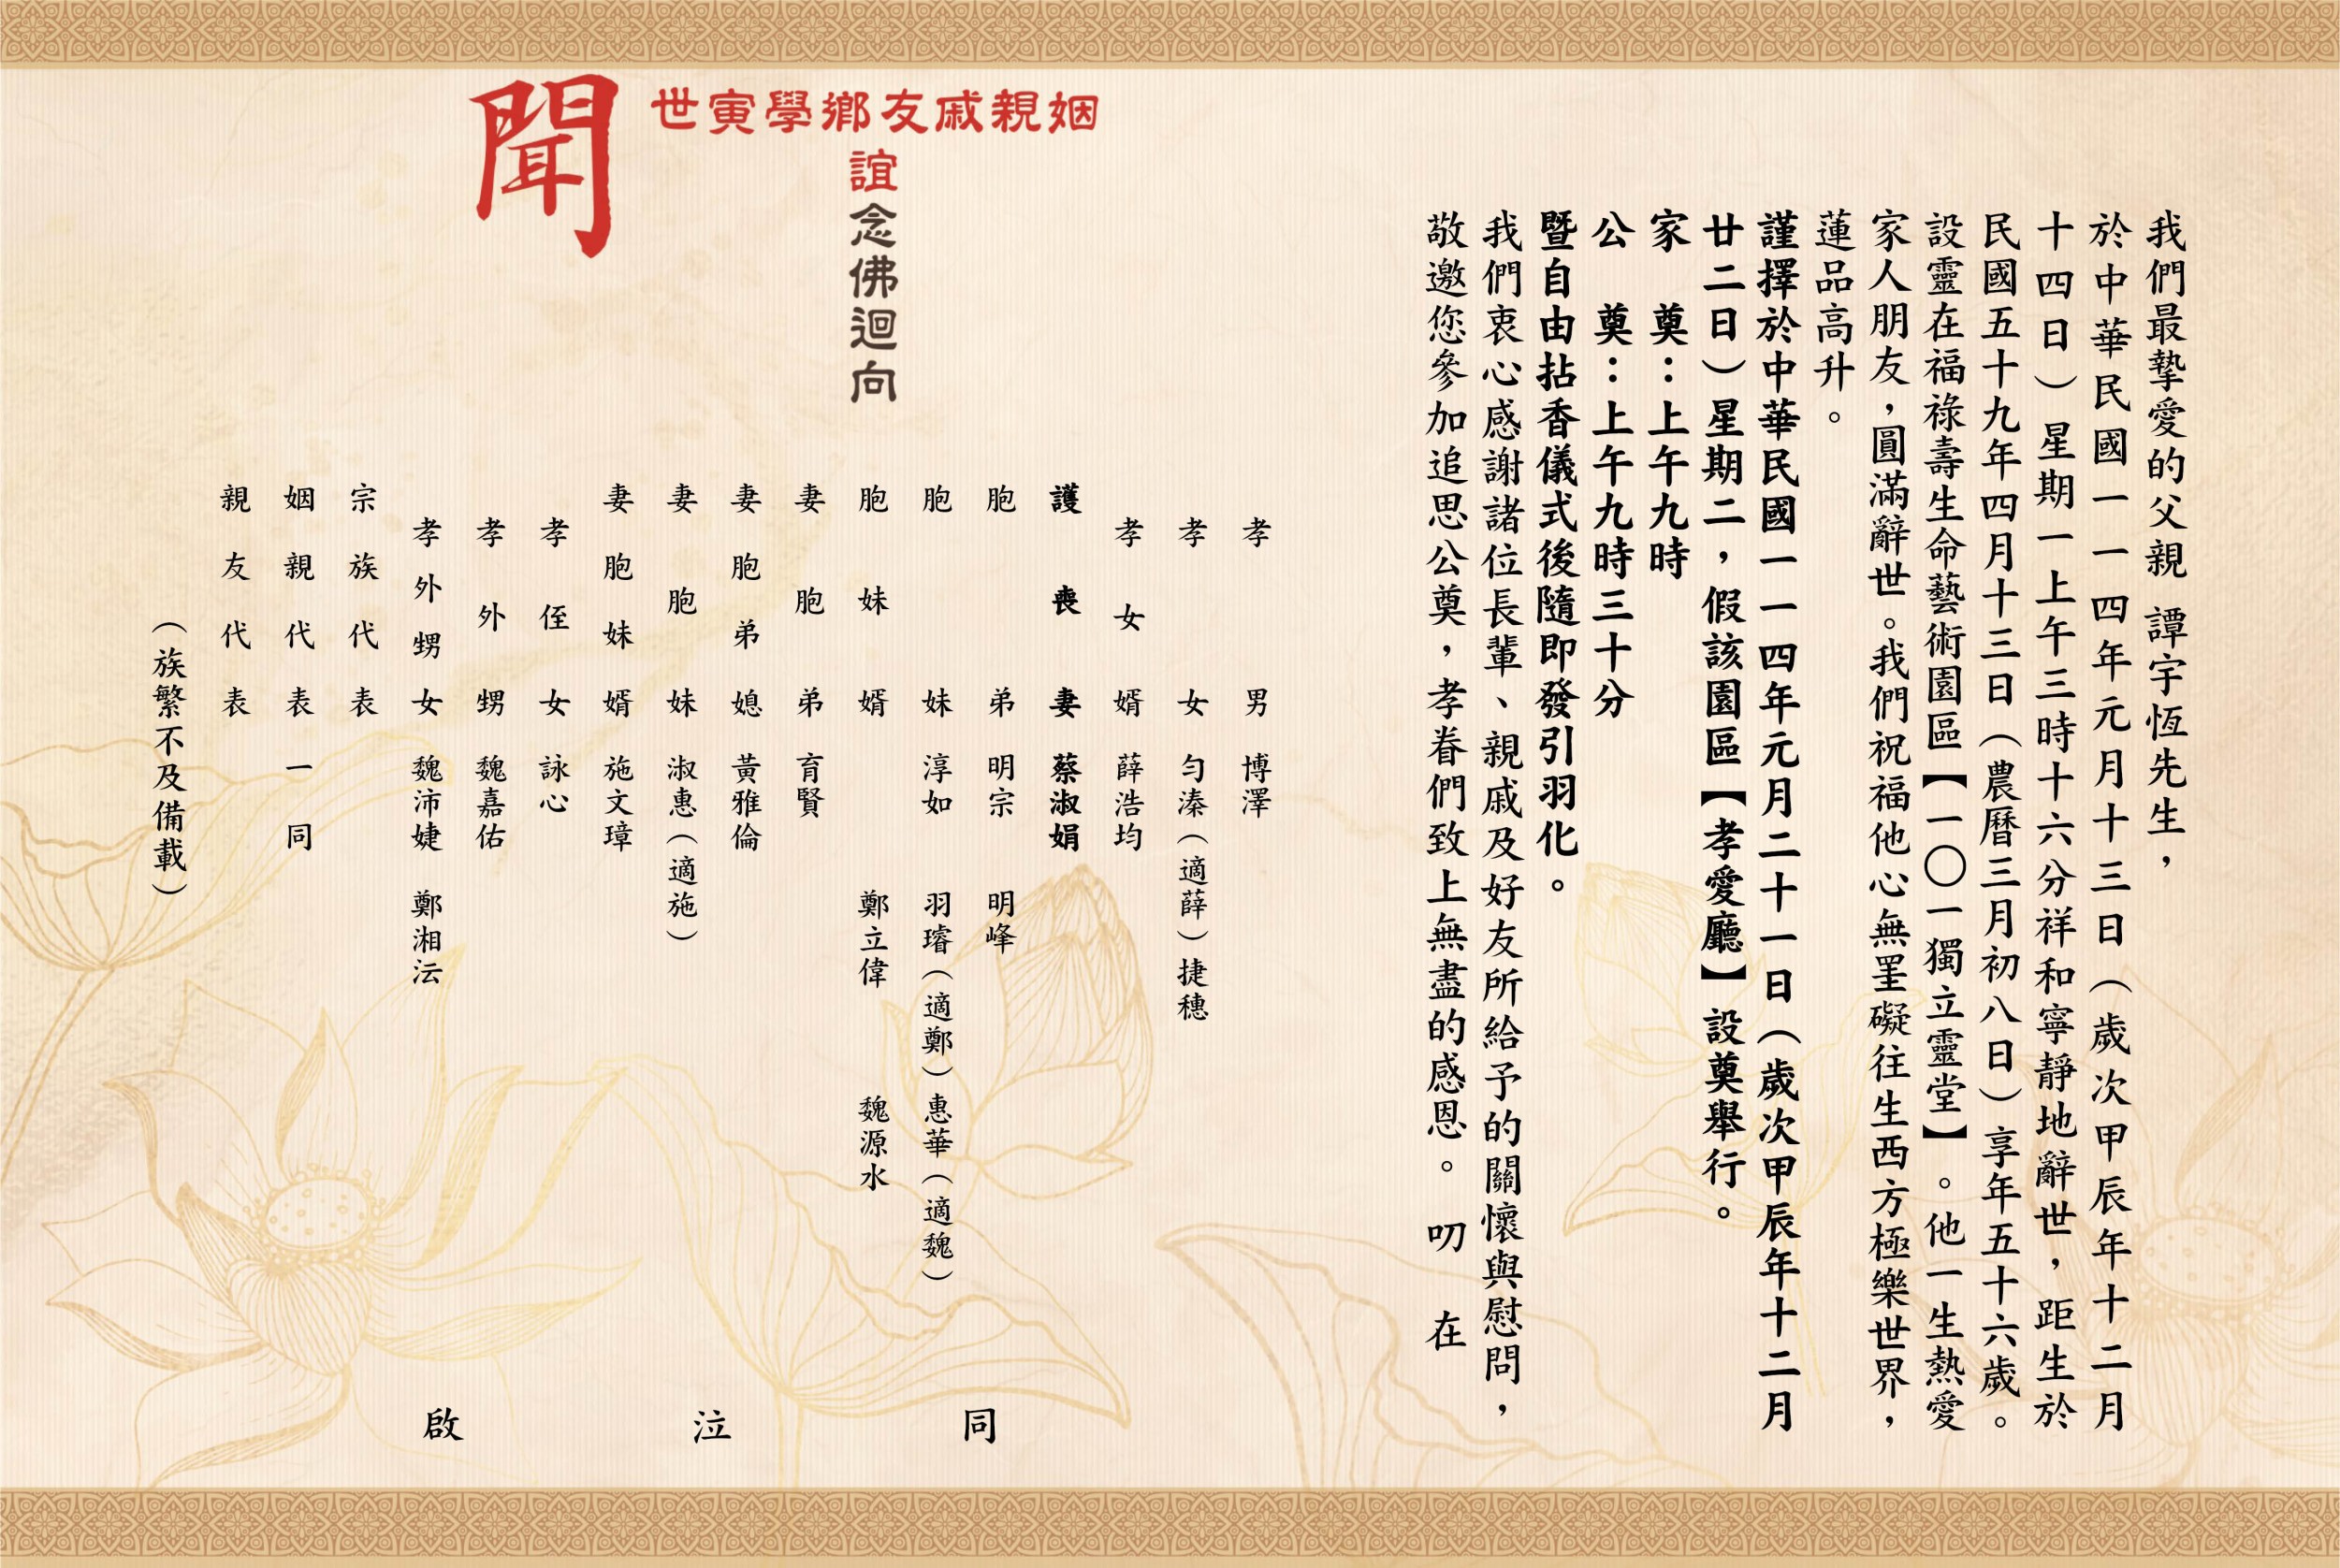 我們最摯愛的父親 譚宇恆先生，
於中華民國一一四年元月十三日（歲次甲辰年十二月
十四日）星期一上午三時十六分祥和寧靜地辭世，距生於
民國五十九年四月十三日（農曆三月初八日）享年五十六歲。
設靈在福祿壽生命藝術園區【一〇一獨立靈堂】。他一生熱愛
家人朋友，圓滿辭世。我們祝福他心無罣礙往生西方極樂世界，
蓮品高升。
謹擇於中華民國一一四年元月二十一日（歲次甲辰年十二月
廿二日）星期二，假該園區【孝愛廳】設奠舉行。
家 奠：上午九時
公 奠：上午九時三十分
暨自由拈香儀式後隨即發引羽化。
我們衷心感謝諸位長輩、親戚及好友所給予的關懷與慰問，
敬邀您參加追思公奠，孝眷們致上無盡的感恩。 叨 在
姻親戚友鄉學寅世
誼念佛迴向
聞
孝男 博澤
孝女 勻溱（適薛）捷穗
孝女婿 薛浩均
護喪妻 蔡淑娟
胞弟 明宗 明峰
胞妹 淳如 羽璿（適鄭）惠華（適魏）
胞妹婿 鄭立偉 魏源水
妻胞弟 育賢
妻胞弟媳 黃雅倫
妻胞妹 淑惠（適施）
妻胞妹婿 施文璋
孝侄女 詠心
孝外甥 魏嘉佑
孝外甥女 魏沛婕 鄭湘沄
宗族代表
姻親代表 一同
親友代表
（族繁不及備載）
同 泣 啟